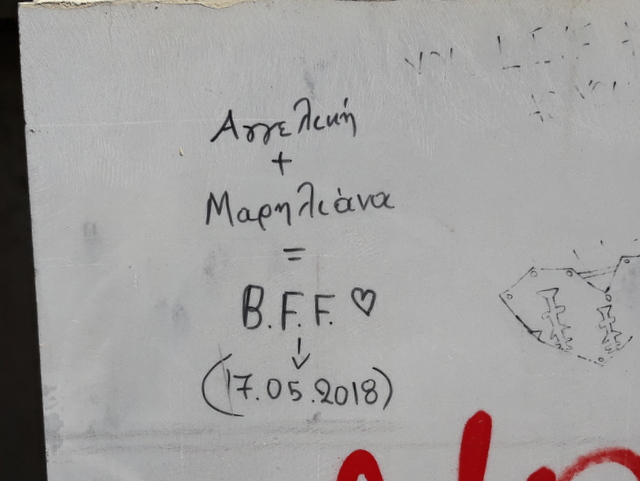 Αγγελική
+
Μαρηλιάνα
=
B.F.F. ♡
↓
(17.05.2018)